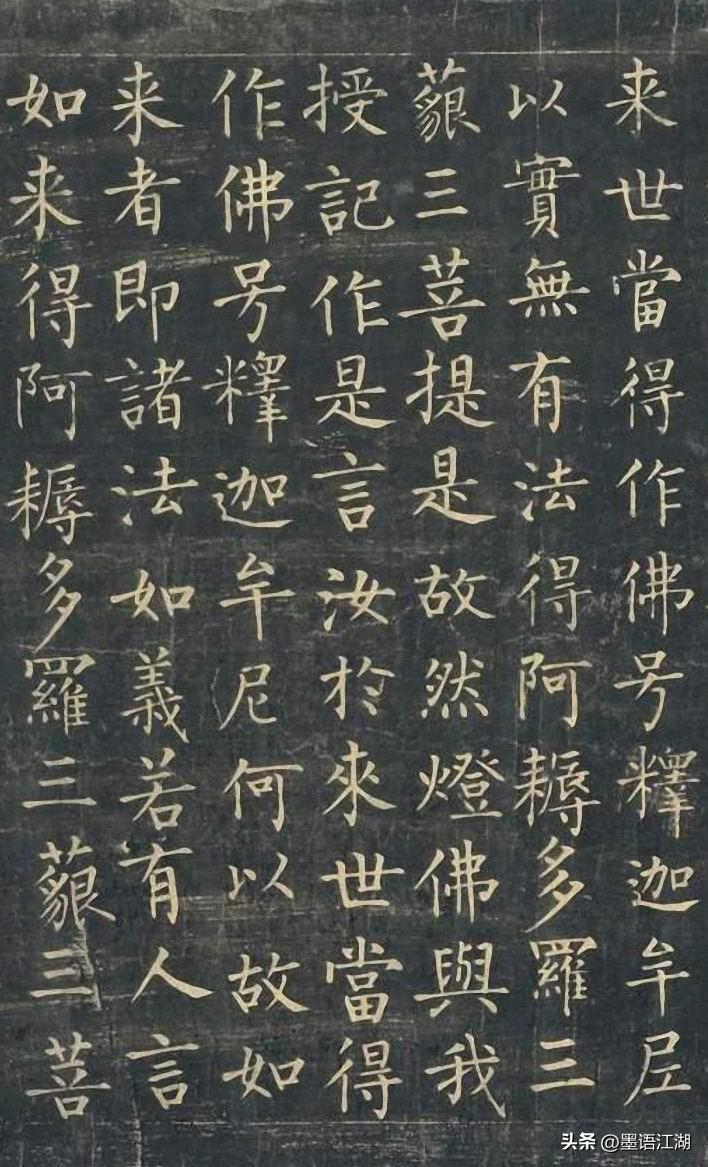 来世當得作佛号釋迦牟尼
以實無有法得阿耨多羅三
藐三菩提是故然燈佛與我
授記作是言汝於來世當得
作佛号釋迦牟尼何以故如
来者即諸法如義若有人言
如来得阿耨多羅三藐三菩
头条 @墨语江湖